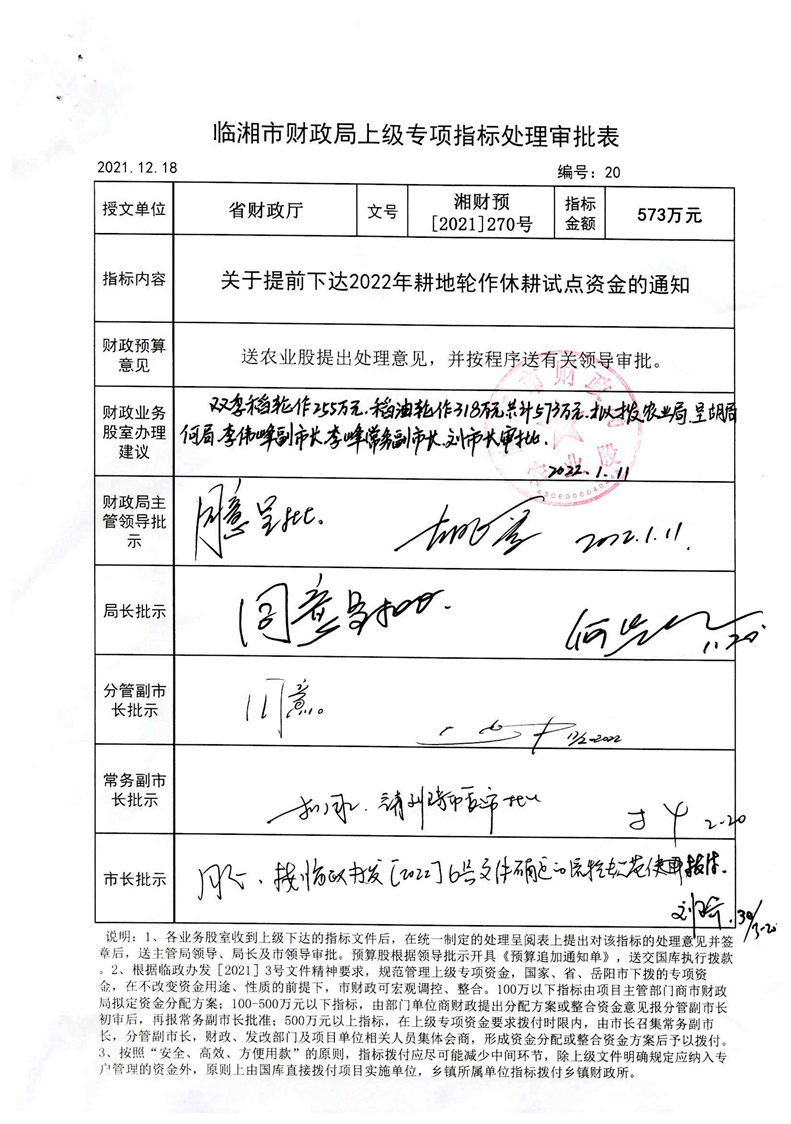 临湘市财政局上级专项指标处理审批表
2021.12.18 编号：20
授文单位 省财政厅 文号 湘财预[2021]270号 指标金额 573万元
指标内容 关于提前下达2022年耕地轮作休耕试点资金的通知
财政预算意见 送农业股提出处理意见，并按程序送有关领导审批。
财政业务股室办理建议 双季稻轮作255万元.稻油轮作318万元共计573万元.拟拨农业局.呈胡局
何局.李伟峰副市长李峰常务副市长.刘市长审批.
2022.1.11
财政局主管领导批示 同意呈批. 2022.1.11.
局长批示 同意呈 11.20
分管副市长批示 同意。 12/2-2022
常务副市长批示 2-20
市长批示 同意、按临政办发[2022]6号文件 使用
刘琦.
说明：1、各业务股室收到上级下达的指标文件后，在统一制定的处理呈阅表上提出对该指标的处理意见并签
章后，送主管局领导、局长及市领导审批。预算股根据领导批示开具《预算追加通知单》，送交国库执行拨款
。2、根据临政办发［2021］3号文件精神要求，规范管理上级专项资金，国家、省、岳阳市下拨的专项资
金，在不改变资金用途、性质的前提下，市财政可宏观调控、整合。100万以下指标由项目主管部门商市财政
局拟定资金分配方案；100-500万元以下指标，由部门单位商财政提出分配方案或整合资金意见报分管副市长
初审后，再报常务副市长批准；500万元以上指标，在上级专项资金要求拨付时限内，由市长召集常务副市
长，分管副市长，财政、发改部门及项目单位相关人员集体会商，形成资金分配或整合资金方案后予以拨付。
3、按照“安全、高效、方便用款”的原则，指标拨付应尽可能减少中间环节，除上级文件明确规定应纳入专
户管理的资金外，原则上由国库直接拨付项目实施单位，乡镇所属单位指标拨付乡镇财政所。